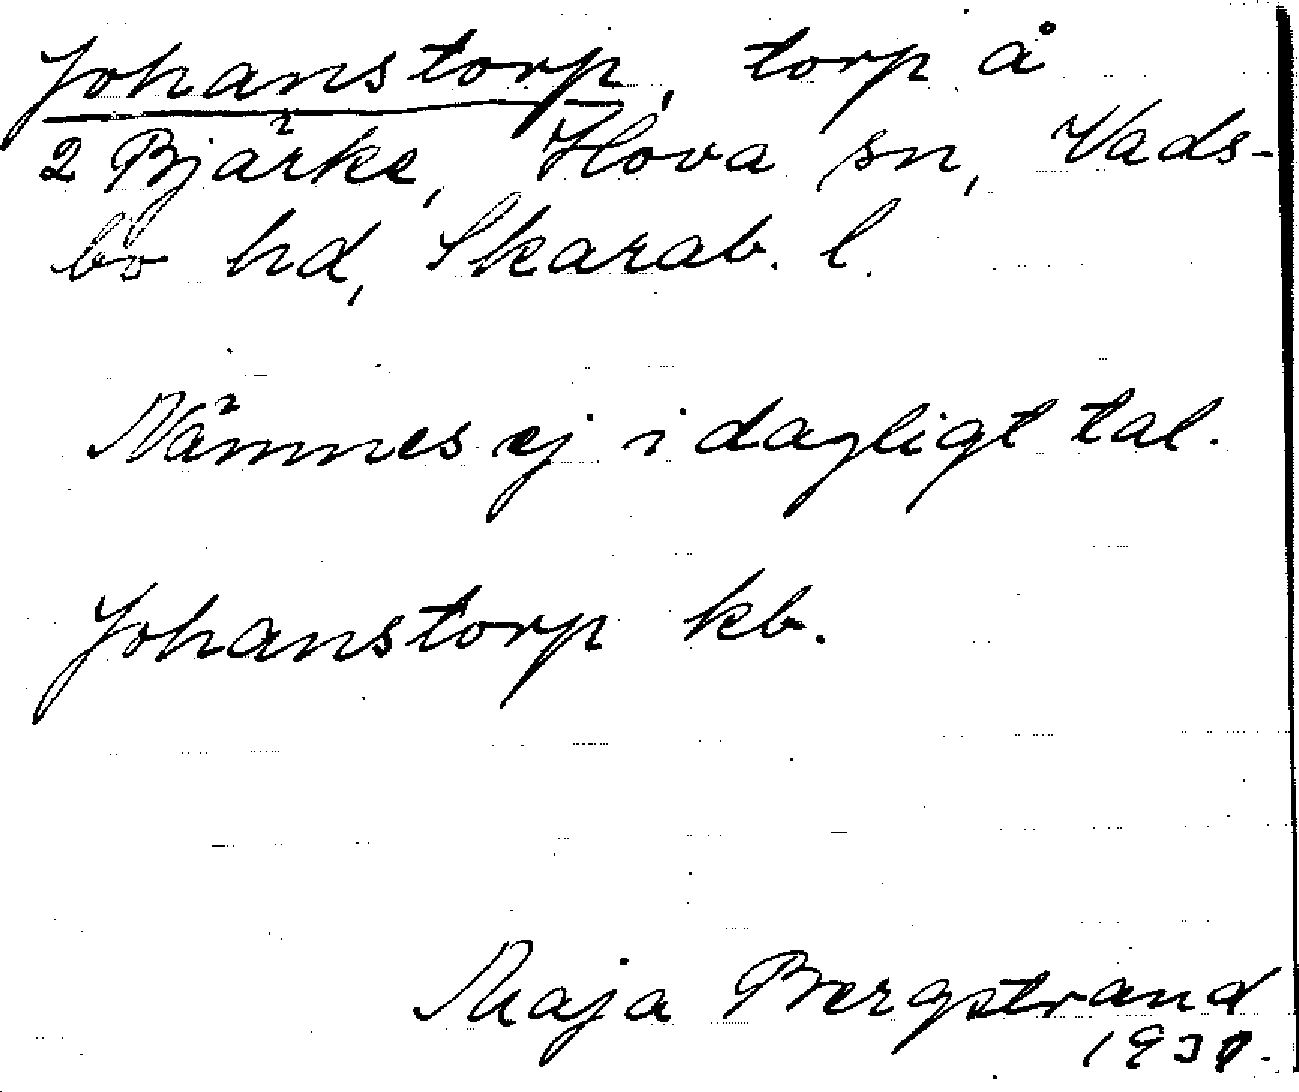 Johanstorp, torp å
2 Bjärke, Hova sn, Vads-
bo hd, Skarab. l.
Nämnes ej i dagligt tal.
Johanstorp kb.
Maja Bergstrand